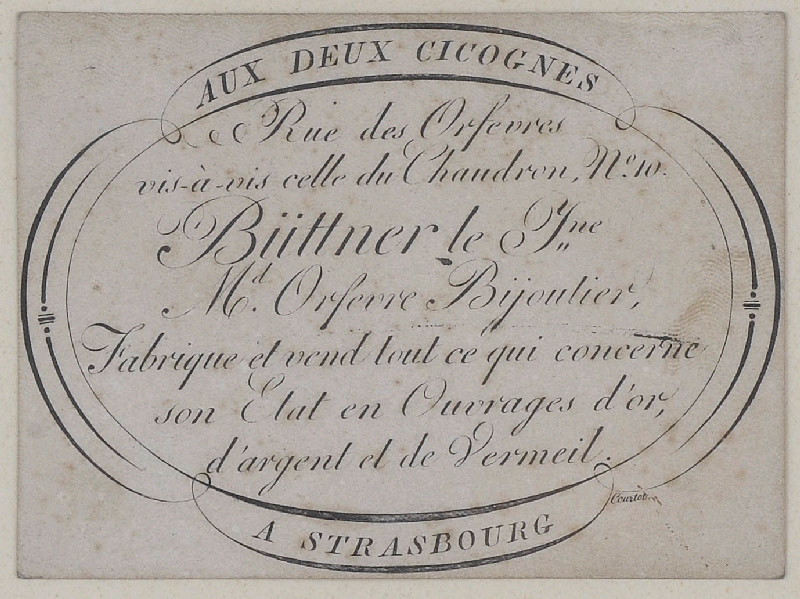 AUX DEUX CICOGNES
Rue des Orfevres
vis-à-vis celle du Chaudron, No. 10.
Büttner le Jne
Md. Orfevre Bijoutier,
Fabrique et vend tout ce qui concerne
son Etat en Ouvrages d'or,
d'argent et de Vermeil.
A STRASBOURG